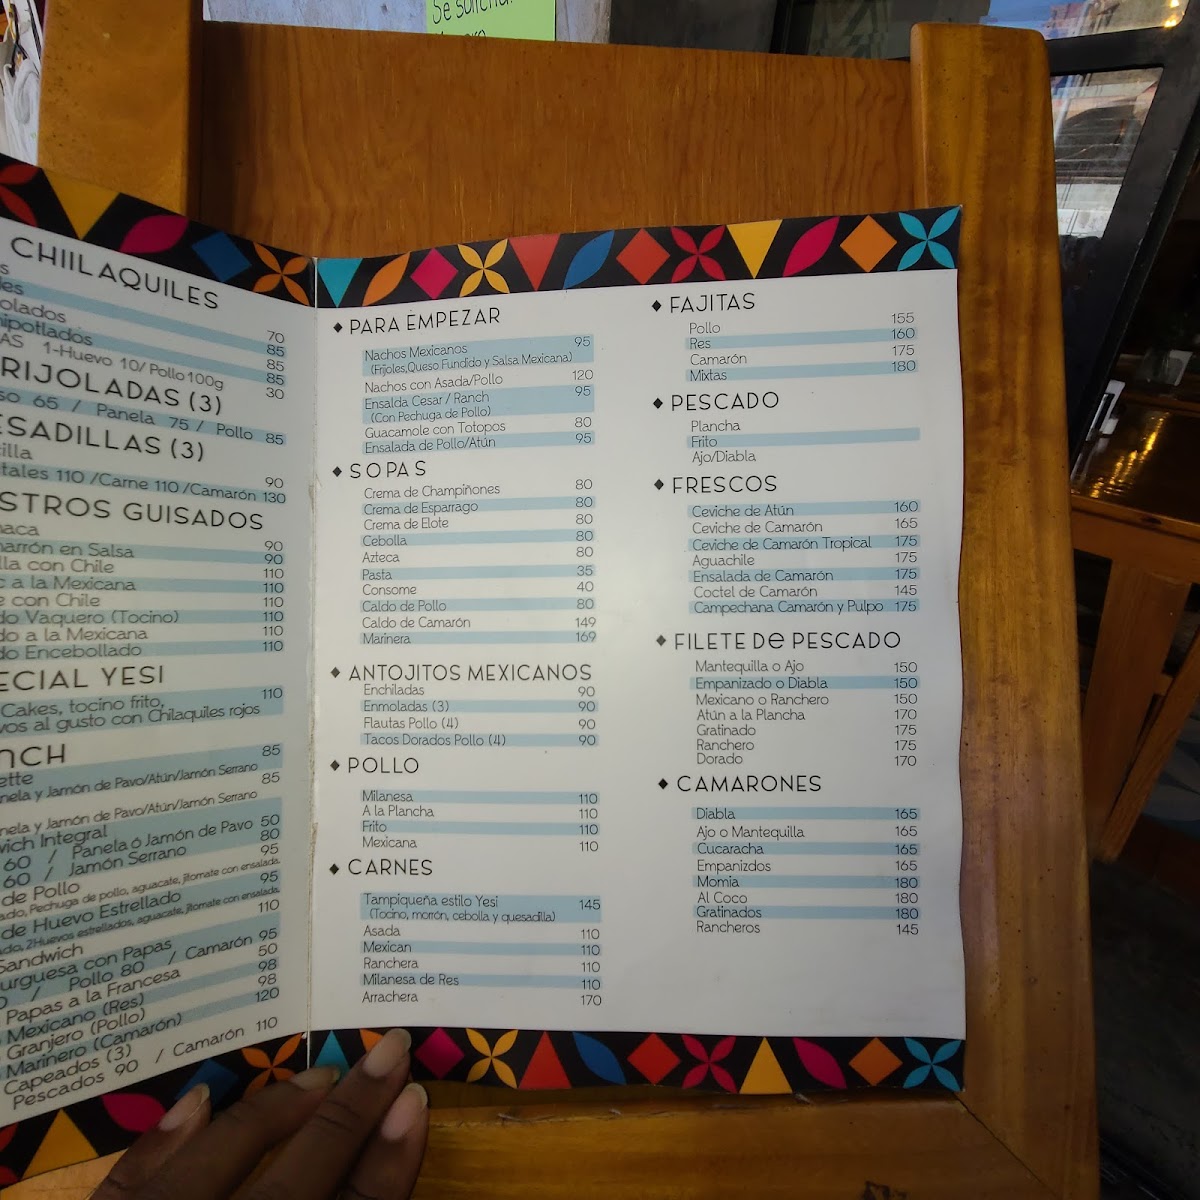 Se solicita
CHIILAQUILES
70
85
85
1-Huevo 10/ Pollo 100g 85
30
RIJOLADAS (3)
65 / Panela 75 / Pollo 85
ESADILLAS (3)
90
110 /Carne 110 /Camarón 130
STROS GUISADOS
90
en Salsa 90
con Chile 110
a la Mexicana 110
con Chile 110
Vaquero (Tocino) 110
a la Mexicana 110
Encebollado 110
ECIAL YESI
Cakes, tocino frito, 110
al gusto con Chilaquiles rojos
85
y Jamón de Pavo/Atún/Jamón Serrano
85
y Jamón de Pavo/Atún/Jamón Serrano
Integral
60 / Panela ó Jamón de Pavo 50
60 / Jamón Serrano 80
de Pollo 95
Pechuga de pollo, aguacate, jitomate con ensalada.
de Huevo Estrellado 95
2Huevos estrellados, aguacate, jitomate con ensalada.
Sandwich 110
con Papas
/ Pollo 80 / Camarón 95
Papas a la Francesa 50
Mexicano (Res) 98
Granjero (Pollo) 98
Marinero (Camarón) 120
Capeados (3)
Pescados 90 / Camarón 110
PARA EMPEZAR
Nachos Mexicanos 95
(Frijoles,Queso Fundido y Salsa Mexicana)
Nachos con Asada/Pollo 120
Ensalda Cesar / Ranch 95
(Con Pechuga de Pollo)
Guacamole con Totopos 80
Ensalada de Pollo/Atún 95
SOPAS
Crema de Champiñones 80
Crema de Esparrago 80
Crema de Elote 80
Cebolla 80
Azteca 80
Pasta 35
Consome 40
Caldo de Pollo 80
Caldo de Camarón 149
Marinera 169
ANTOJITOS MEXICANOS
Enchiladas 90
Enmoladas (3) 90
Flautas Pollo (4) 90
Tacos Dorados Pollo (4) 90
POLLO
Milanesa 110
A la Plancha 110
Frito 110
Mexicana 110
CARNES
Tampiqueña estilo Yesi 145
(Tocino, morrón, cebolla y quesadilla)
Asada 110
Mexican 110
Ranchera 110
Milanesa de Res 110
Arrachera 170
FAJITAS
Pollo 155
Res 160
Camarón 175
Mixtas 180
PESCADO
Plancha
Frito
Ajo/Diabla
FRESCOS
Ceviche de Atún 160
Ceviche de Camarón 165
Ceviche de Camarón Tropical 175
Aguachile 175
Ensalada de Camarón 175
Coctel de Camarón 145
Campechana Camarón y Pulpo 175
FILETE De PESCADO
Mantequilla o Ajo 150
Empanizado o Diabla 150
Mexicano o Ranchero 150
Atún a la Plancha 170
Gratinado 175
Ranchero 175
Dorado 170
CAMARONES
Diabla 165
Ajo o Mantequilla 165
Cucaracha 165
Empanizdos 165
Momia 180
Al Coco 180
Gratinados 180
Rancheros 145